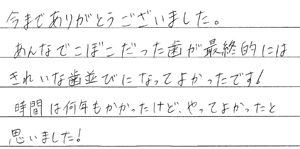 今までありがとうございました。
あんなでこぼこだった歯が最終的には
きれいな歯並びになってよかったです!
時間は何年もかかったけど、やってよかったと
思いました!